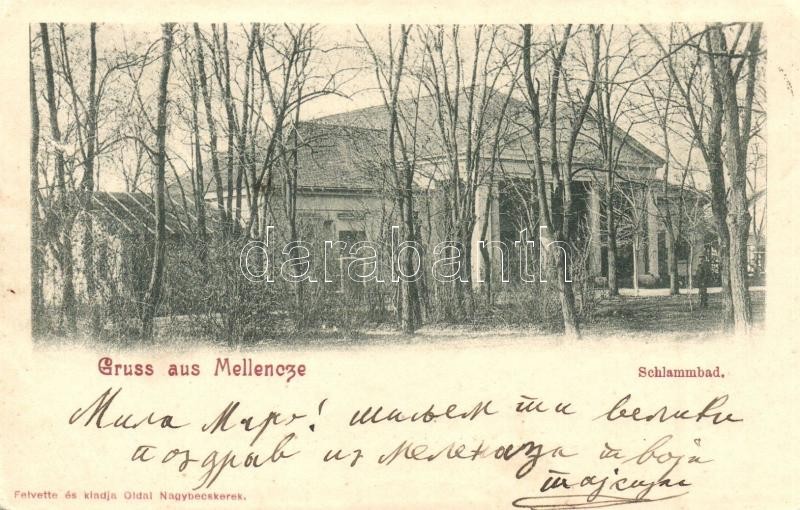 darabanth
Gruss aus Mellencze
Schlammbad.
Мила Маро! шиљем ти велики
поздрав из Меленаза твоја
Felvette és kiadja Oldal Nagybecskerek.